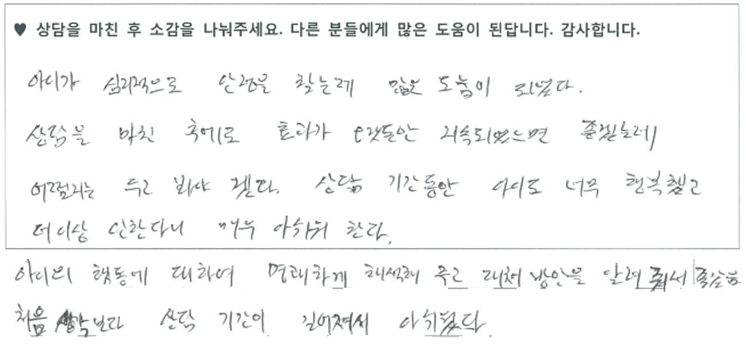 ♥ 상담을 마친 후 소감을 나눠주세요. 다른 분들에게 많은 도움이 된답니다. 감사합니다.
아이가 심리적으로 안정을 찾는데 많은 도움이 되었다.
상담을 마친 후에도 효과가 오랫동안 지속되었으면 좋겠는데
어떨지는 두고 봐야 겠다. 상담 기간동안 아이도 너무 행복했고
더이상 안한다니 매우 아쉬워 한다.
아이의 행동에 대하여 명쾌하게 해석해 주고 대처 방안을 알려 줘서 좋았음
처음 생각보다 상담 기간이 길어져서 아쉬웠다.